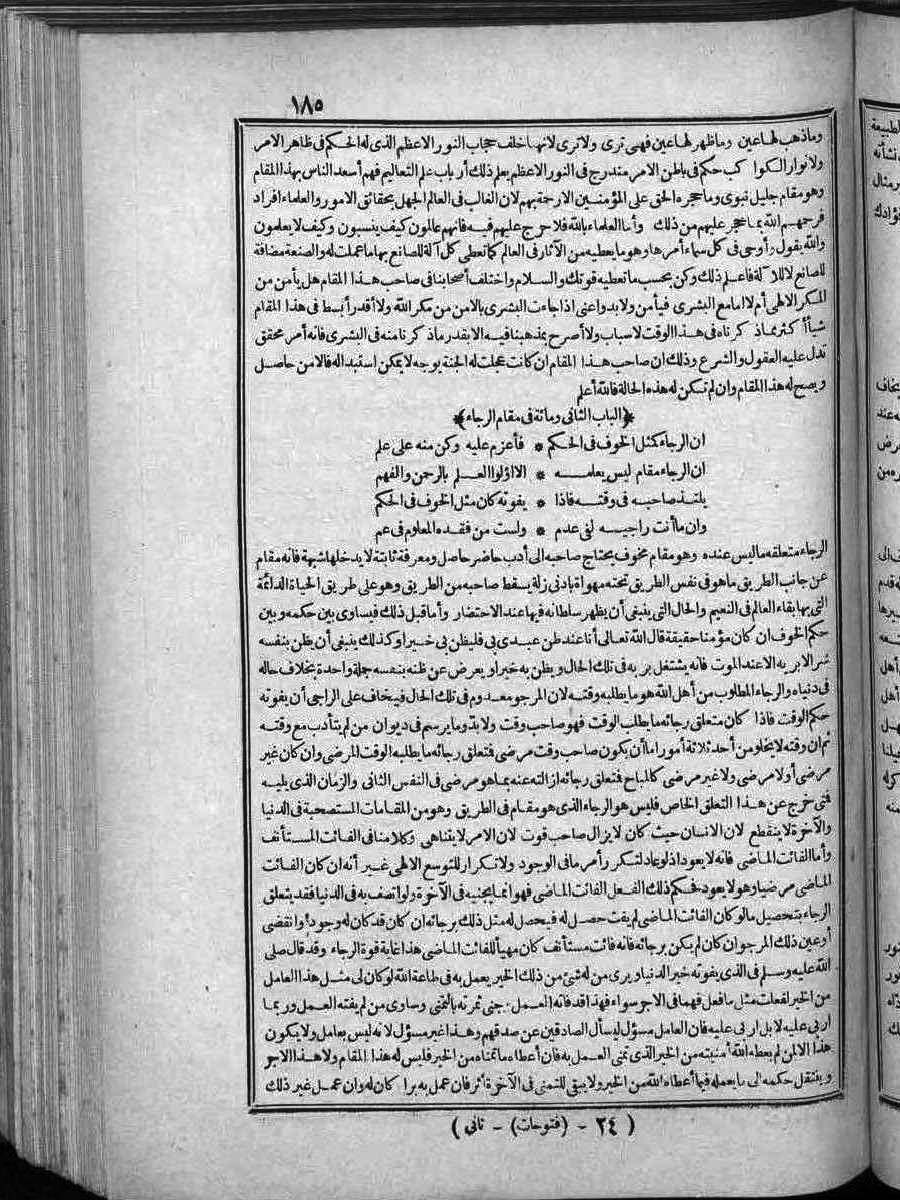 ١٨٥
وماذهب لهاعين وماظهر لهاعين فهى ترى ولاترى لانها خلف حجاب النور الاعظم الذى له الحكم فى ظاهر الامر
ولانوار الكواكب حكم فى باطن الامر مندرج فى النور الاعظم يعلم ذلك أرباب علم التعاليم فهم أسعد الناس بهذا المقام
وهو مقام جليل نبوى وماحجره الحق على المؤمنين الارحة بهم لان الغالب فى العالم الجهل بحقائق الامور والعلماء افراد
فرحهم الله بما حجر عليهم من ذلك وأما العلماء بالله فلاحرج عليهم فيه فانهم عالمون كيف ينسبون وكيف لايعلمون
والله يقول وأوحى فى كل سماء أمرها وهو مايعطيه من الآثار فى العالم كما تعطى كل آلة للصانع بها ماعملت له والصنعة مضافة
للصانع لاللآلة فاعلم ذلك وكن بحسب ماتعطيه قوتك والسلام واختلف أصحابنا فى صاحب هذا المقام هل يأمن من
المكر الالهى أم لا امامع البشرى فيأمن ولابد واعنى اذا جاءت البشرى بالامن من مكر الله ولاأقدر أبسط فى هذا المقام
شيأ أكثر مماذكرناه فى هذا الوقت لاسباب ولاأصرح بمذهبنا فيه الابقدر ماذكرنا منه فى البشرى فانه أمر محقق
تدل عليه العقول والشرع وذلك ان صاحب هذا المقام ان كانت عجلت له الجنة بوجه لايمكن استبداله فالامن حاصل
ويصح له هذا المقام وان لم تكن له هذه الحالة فالله أعلم
﴿الباب الثانى ومائة فى مقام الرجاء﴾
ان الرجاء كمثل الخوف فى الحكم * فأعزم عليه وكن منه على علم
ان الرجاء مقام ليس يعلمه * الا اولوا العلم بالرحمن والفهم
يلتذ صاحبه فى وقته فاذا * يفوته كان مثل الخوف فى الحكم
وان ماأنت راجيه لفى عدم * ولست من فقده المعلوم فى عم
الرجاء متعلقه ماليس عنده وهو مقام مخوف يحتاج صاحبه الى أدب حاضر حاصل ومعرفة ثابتة لايدخلها شبهة فانه مقام
عن جانب الطريق ماهو فى نفس الطريق تحته مهواة بادنى زلة يسقط صاحبه من الطريق وهو على طريق الحياة الدائمة
التى بها بقاء العالم فى النعيم والحال التى ينبغى أن يظهر سلطانه فيها عند الاحتضار وأما قبل ذلك فيساوى بين حكمه وبين
حكم الخوف ان كان مؤمنا حقيقة قال الله تعالى أنا عند ظن عبدى بى فليظن بى خيرا وكذلك ينبغى أن يظن بنفسه
شرا لا بربه الاعند الموت فانه يشتغل بربه فى تلك الحال ويظن به خيرا ويعرض عن ظنه بنفسه جملة واحدة بخلاف حاله
فى دنياه والرجاء المطلوب من أهل الله هو مايطلبه وقته لان المرجو معدوم فى تلك الحال فيخاف على الراجى أن يفوته
حكم الوقت فاذا كان متعلق رجائه مايطلب الوقت فهو صاحب وقت ولابد ومايرسم فى ديوان من لم يتأدب مع وقته
ثم ان وقته لايخلو من أحد ثلاثة أمور اما أن يكون صاحب وقت مرضى فتعلق رجائه مايطلبه الوقت المرضى وان كان غير
مرضى أولا مرضى ولاغير مرضى كالمباح فتعلق رجائه ازالته عنه بما هو مرضى فى النفس الثانى والزمان الذى يليه
فتى خرج عن هذا التعلق الخاص فليس هو الرجاء الذى هو مقام فى الطريق وهو من المقامات المستصحبة فى الدنيا
والآخرة لاينقطع لان الانسان حيث كان لايزال صاحب فوت لان الامر لايتناهى وكلامنا فى الفائت المستأنف
وأما الفائت الماضى فانه لايعود اذلوعاد لتكرر أمر مافى الوجود ولاتكرار للتوسع الالهى غير أنه ان كان الفائت
الماضى مرضيا وهو لايعود فحكم ذلك الفعل الفائت الماضى فهو انما يجنيه فى الآخرة ولو اتصف به فى الدنيا فقد يتعلق
الرجاء بتحصيل مالو كان الفائت الماضى لم يفت حصل له فيحصل له مثل ذلك برجائه ان كان قد كان له وجود وانقضى
أوعين ذلك المرجو ان كان لم يكن برجائه فانه فائت مستأنف كان مهيأ للفائت الماضى هذا غاية قوة الرجاء وقد قال صلى
الله عليه وسلم فى الذى يفوته خير الدنيا ويرى من له شئ من ذلك الخير يعمل به فى طاعة الله لو كان لى مثل هذا العامل
من الخير لفعلت مثل مافعل فهما فى الاجر سواء فهذا قد فاته العمل وجنى ثمرته بالتمنى وساوى من لم يفته العمل وربما
اربى عليه لابل اربى عليه فان العامل مسؤل ليسأل الصادقين عن صدقهم وهذا غير مسؤل لانه ليس بعامل ولايكون
هذا الالمن لم يعطه الله أمنيته من الخير الذى تمنى العمل به فان أعطاه ماتمناه من الخير فليس له هذا المقام ولاهذا الاجر
وينتقل حكمه الى مايعمله فيما أعطاه الله من الخير ولايبقى للتمنى فى الآخرة أثر فان عمل به برا كان له وان عمل غير ذلك
( ٢٤ - (فتوحات) - ثانى )